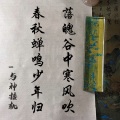 落魄谷中寒风吹
春秋蝉鸣少年归
与神接轨